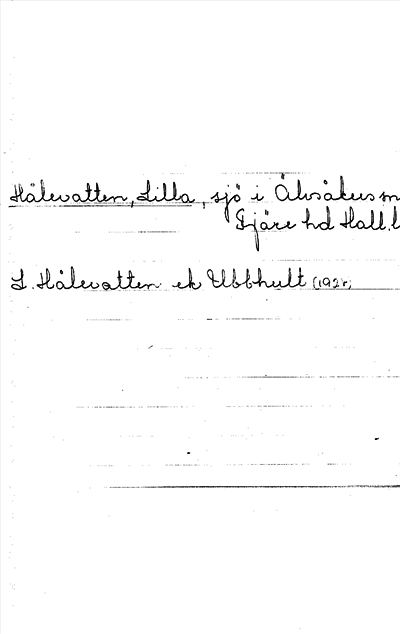 Hålevatten, Lilla, sjö i Älvsåkers sn
Fjäre hd Hall. l
L. Hålevatten ek Ubbhult (192